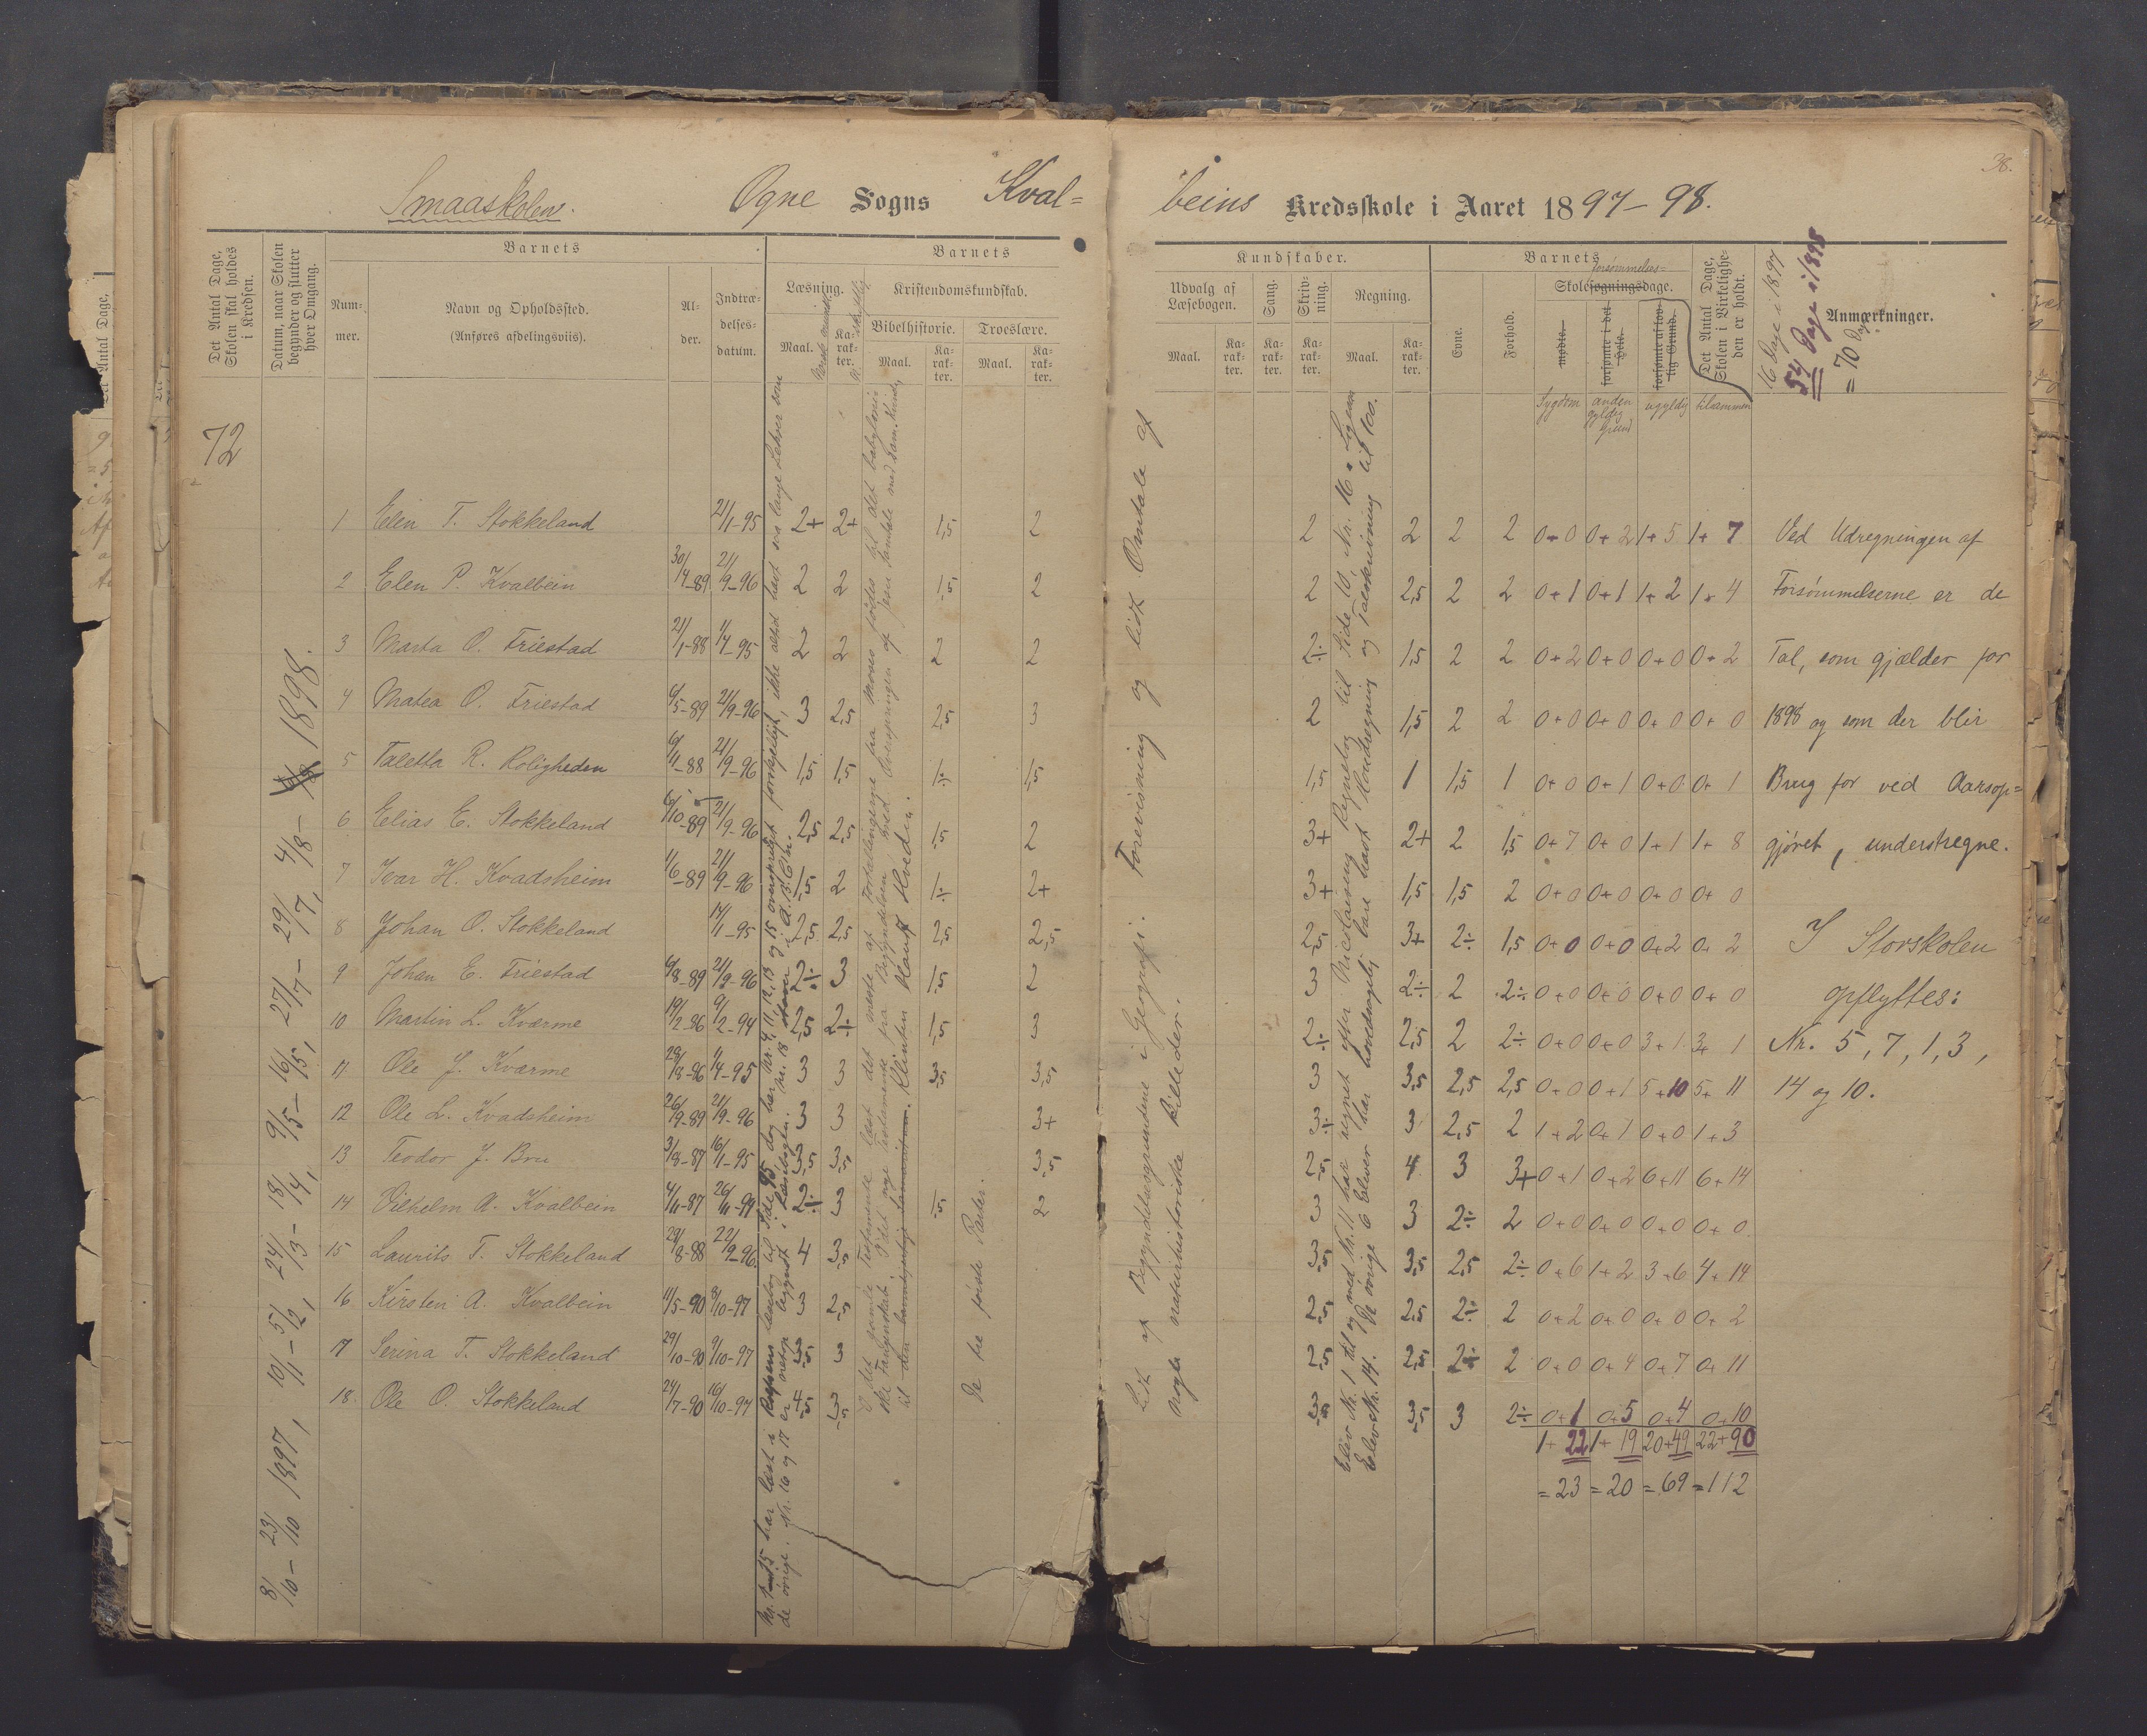 38.
Smaaskolen.
Ogne Sogns Kval=
beins Kredsskole i Aaret 1897-98.
Det Antal Dage, Skolen skal holdes i Kredsen.
Datum, naar Skolen begynder og slutter hver Omgang.
Barnets
Num-
mer.
Navn og Opholdssted.
(Anføres afdelingsviis).
Al-
der.
Indtræ-
delses-
datum.
Barnets
Læsning.
Maal.
Ka-
rak-
ter.
Kristendomskundskab.
Bibelhistorie.
Maal.
Ka-
rak-
ter.
Troeslære.
Maal.
Ka-
rak-
ter.
Kundskaber.
Udvalg af
Læsebogen.
Maal.
Ka-
rak-
ter.
Sang.
Ka-
rak-
ter.
Skriv-
ning.
Ka-
rak-
ter.
Regning.
Maal.
Ka-
rak-
ter.
Barnets
Evne.
Forhold.
forsømmelses=
Skolesøgningsdage.
mødte.
forsømte i det Hele.
forsømte af lov-
lig Grund.
Sygdom
anden gyldig Grund
ugyldig
tilsammen
Det Antal Dage, Skolen i Virkelighe-
den er holdt.
16 Dage i 1897
54 Dage i 1898
= 70 Dage
Anmærkninger.
72
8/10 - 23/10 1897, 10/1 - 5/2, 24/3 - 18/4, 9/5 - 16/5, 27/7 - 29/7, 4/8 - 1898.
1 Elen T. Stokkeland 21/1-95 2+ 2+ 1,5 2 2 2 2 2 0+0 0+2 1+5 1+7
2 Elen P. Kvalbein 30/4-89 21/9-96 2 2 1,5 2 2 2,5 2 2 0+1 0+1 1+2 1+4
3 Marta O. Friestad 21/1-88 1/4-95 2 2 2 2 2÷ 1,5 2 2 0+2 0+0 0+0 0+2
4 Matea O. Friestad 6/5-89 21/9-96 3 2,5 2,5 3 2 1,5 2 2 0+0 0+0 0+0 0+0
5 Taletta R. Roligheden 6/1-88 21/9-96 1,5 1,5 1÷ 1,5 1,5 1 1,5 1 0+0 0+1 0+0 0+1
6 Elias E. Stokkeland 6/10-89 21/9-96 2,5 2,5 1,5 2 3+ 2+ 2 1,5 0+7 0+0 1+1 1+8
7 Ivar H. Kvadsheim 1/6-89 21/9-96 1,5 2 1÷ 2+ 3+ 1,5 1,5 2 0+0 0+0 0+0 0+0
8 Johan O. Stokkeland 14/1-95 2,5 2,5 2,5 2,5 2,5 3+ 2÷ 1,5 0+0 0+0 0+2 0+2
9 Johan E. Friestad 6/8-89 21/9-96 2÷ 3 1,5 2 3 2÷ 2 2÷ 0+0 0+0 0+0 0+0
10 Martin L. Kværme 19/2-96 9/2-94 2,5 2÷ 1,5 3 2÷ 2,5 2 2÷ 0+0 0+0 3+1 3+1
11 Ole J. Kværme 28/8-96 1/4-95 3 3 3,5 3,5 3 3,5 2,5 2,5 0+0 0+1 5+10 5+11
12 Ole L. Kvadsheim 26/9-89 21/9-96 3 3 3+ 3÷ 3 2,5 2 1+2 0+1 0+0 1+3
13 Teodor J. Bru 3/8-87 16/1-95 3,5 3,5 3,5 2,5 4 3 3+ 0+1 0+2 6+11 6+14
14 Vilhelm A. Kvalbein 4/11-87 26/11-94 2÷ 3 1,5 2 3 3 2÷ 2 0+0 0+0 0+0 0+0
15 Laurits T. Stokkeland 28/8-88 22/9-96 4 3,5 3,5 3,5 2,5 2÷ 0+6 1+2 3+6 4+14
16 Kirsten A. Kvalbein 11/5-90 8/10-97 3 2,5 2,5 2,5 2÷ 2 0+2 0+0 0+0 0+2
17 Serina T. Stokkeland 29/10-90 9/10-97 3,5 3 2,5 2,5 2÷ 2 0+0 0+4 0+7 0+11
18. Ole O. Stokkeland 24/7-90 16/10-97 4,5 3,5 3,5 3,5 3 2÷ 0+1 0+5 0+4 0+10
1+22 1+19 20+49 22+90
=23 =20 =69 =112
de øvrige. Nr. 16 og 17 er netop begyndt i Læsebogen. Nr. 18 staver i A.B.C'en.
De tre første Parter.
Lit af Begyndelsesgrundene i Geografi. Forevisning og lidt Omtale af
nogle naturhistoriske Billeder.
Elev Nr. 1 til og med Nr. 11 har regnet efter Nicolaisens Regnebog til Side 10, Nr. 16. Ligesaa
Elev Nr. 14. De øvrige 6 Elever har hovedsagelig bare havt Hovedregning og Talskrivning til 100.
Ved Udregningen af
Forsømmelserne er de
Tal, som gjælder for
1898 og som der blir
Brug for ved Aarsop=
gjøret, understregne.
I Storskolen
opflyttes:
Nr. 5, 7, 1, 3,
14 og 10.